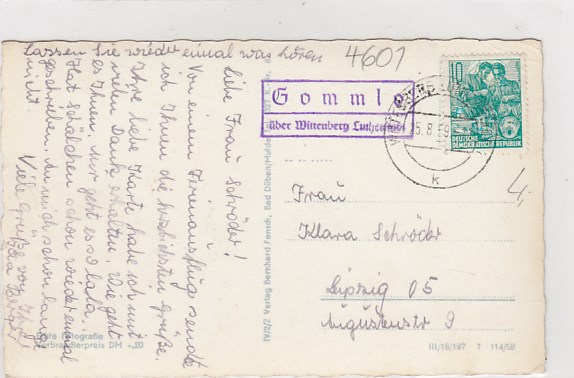 Lassen Sie wieder einmal was hören
4601
Liebe Frau Schröder!
Von einem Ferienausflug sendet
ich Ihnen die herzlichsten Grüße.
Ihre liebe Karte habe ich mit
vielen Dank erhalten. Wie geht
es Ihnen, mir geht es so lala.
Hat Schälchen schon wieder einmal
geschrieben. An mich schon lange
nicht.
Viele Grüße von Ihrer
Gomml
über Wittenberg Lutherstadt
10
DEUTSCHE
DEMOKRATISCHE REPUBLIK
5.8.59
k
Frau
Klara Schröder
Leipzig O5
Augustenstr 9
4,-
Echte Fotografie
Verbraucherpreis DM -,20
III/18/197 T 114/58